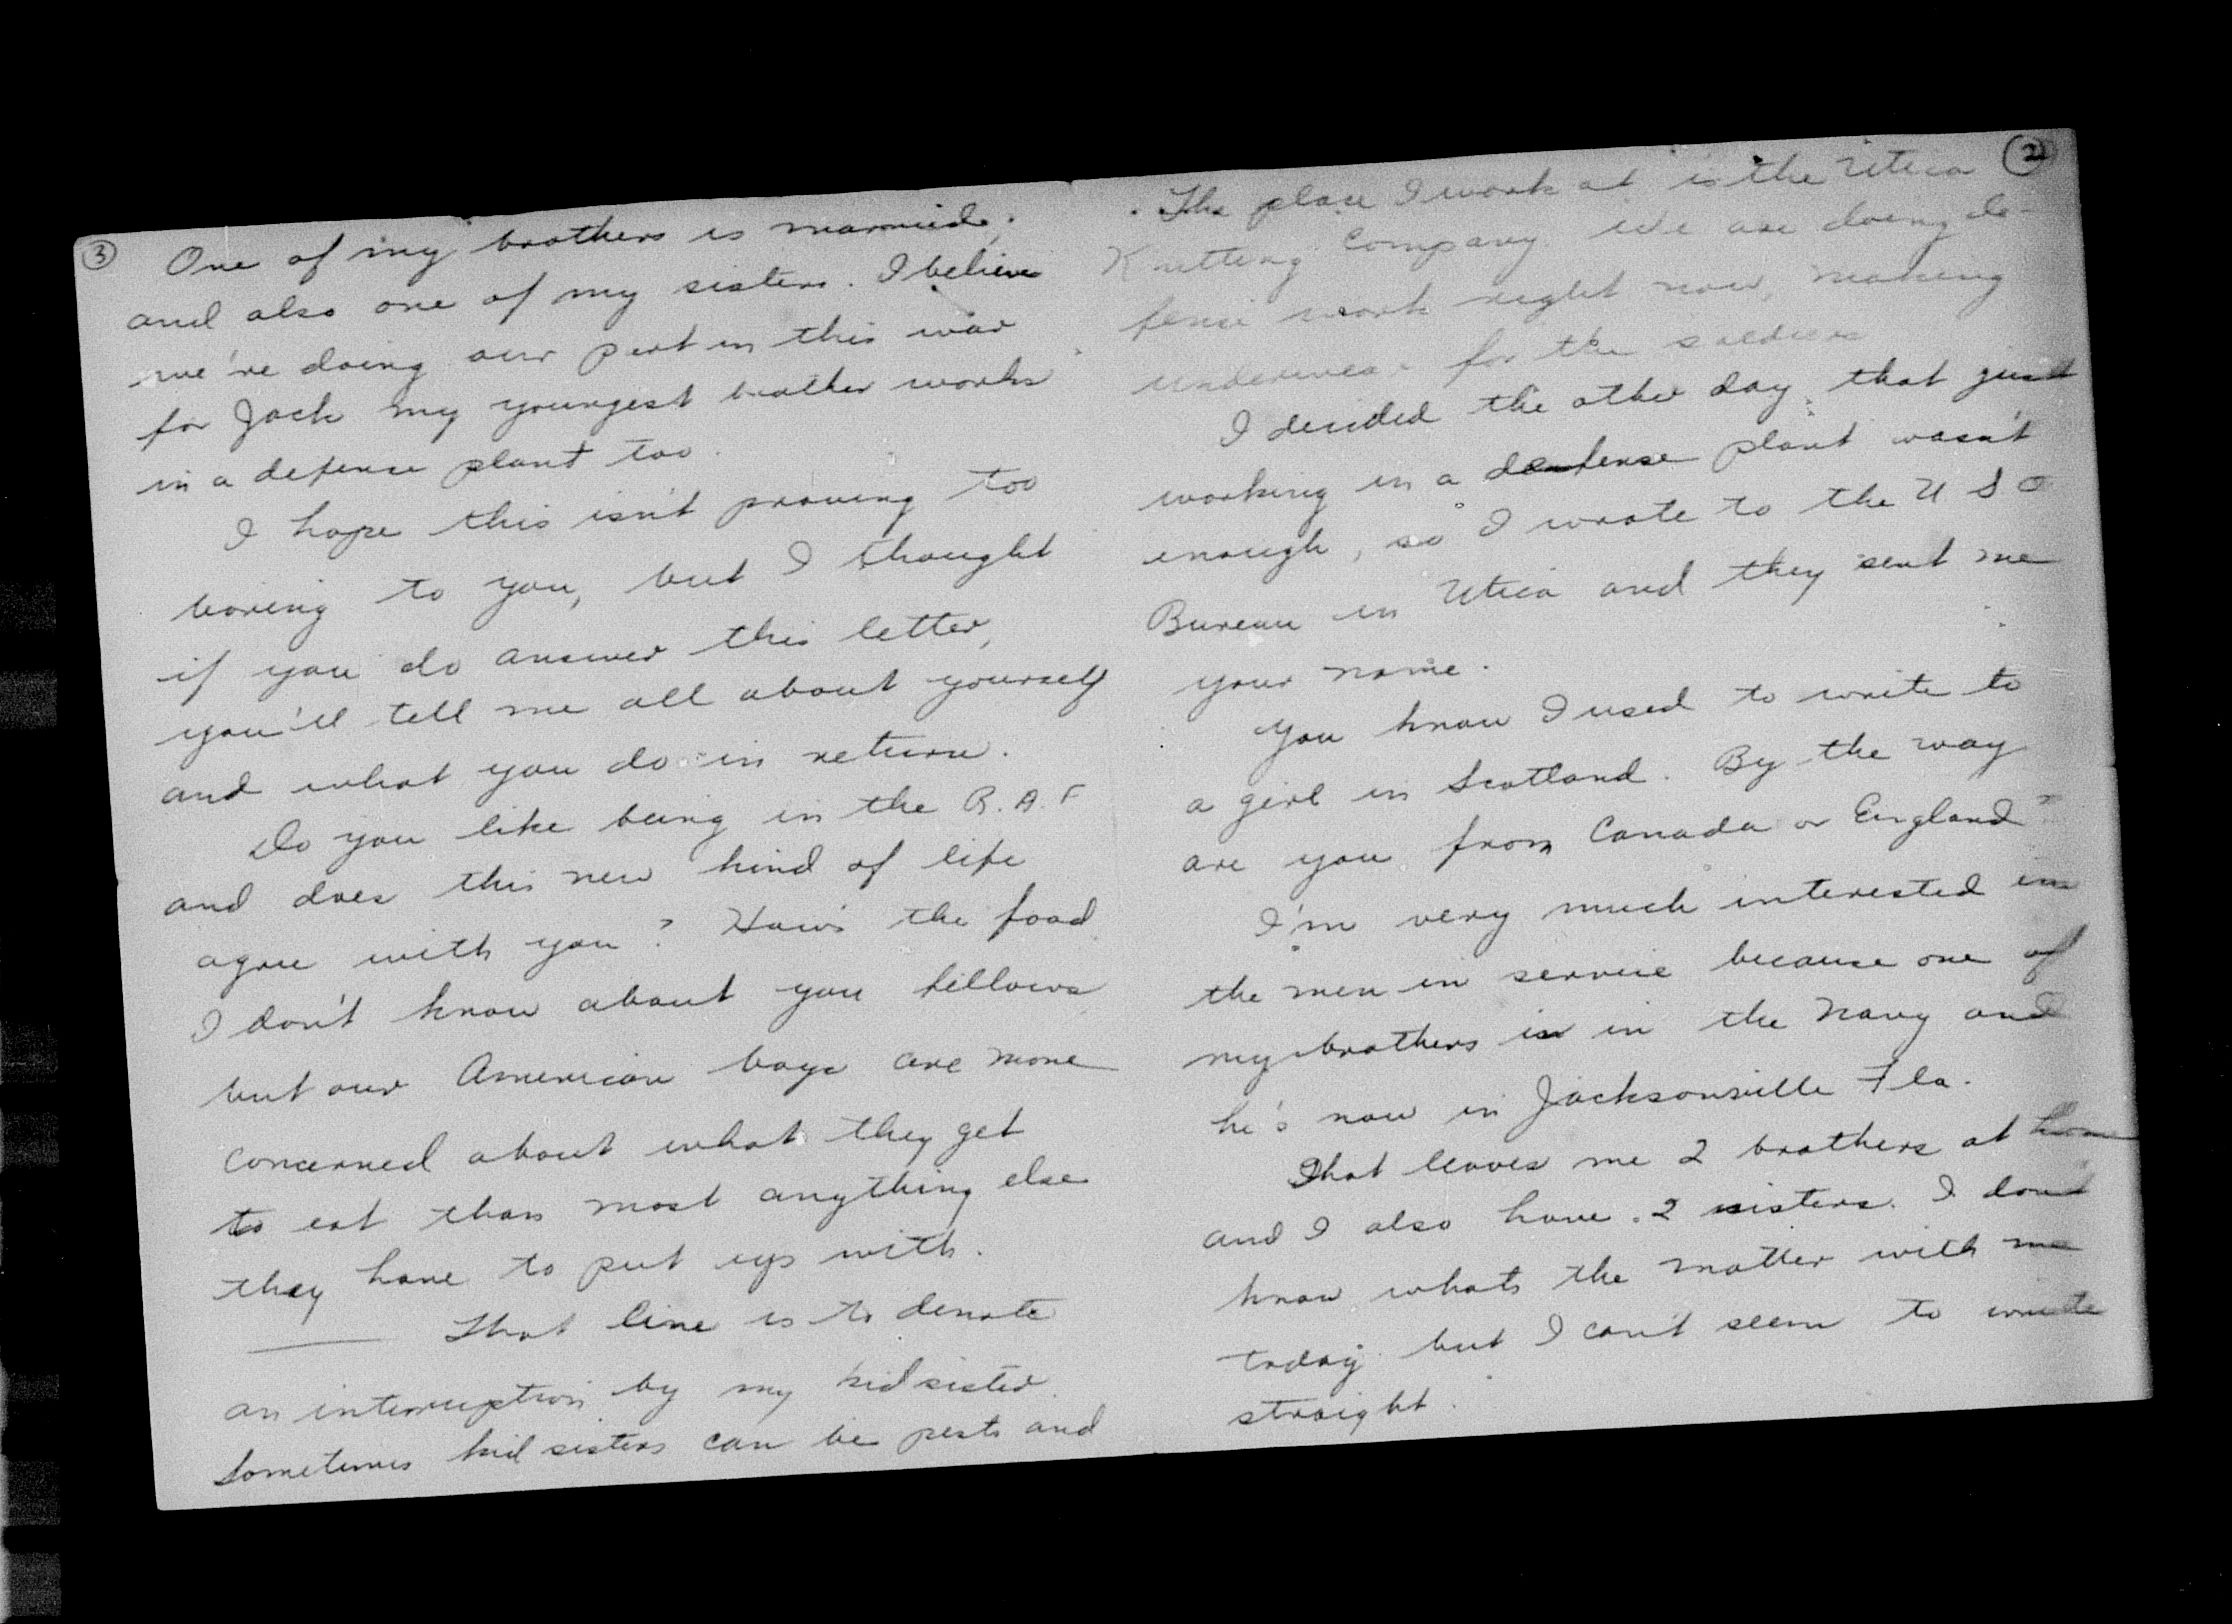 ②
The place I work at is the Utica
Knitting Company. We are doing de-
fense work right now, making
underwear for the soldiers
I decided the other day that just
working in a defense plant wasn't
enough, so I wrote to the U S O
Bureau in Utica and they sent me
your name.
You know I used to write to
a girl in Scotland. By the way
are you from Canada or England?
I'm very much interested in
the men in service because one of
my brothers is in the Navy and
he's now in Jacksonville Fla.
That leaves me 2 brothers at home
and I also have 2 sisters. I don't
know whats the matter with me
today but I can't seem to write
straight.
③
One of my brothers is married,
and also one of my sisters. I believe
we're doing our part in this war
for Jack my youngest brother works
in a defense plant too.
I hope this isn't proving too
boring to you, but I thought
if you do answer this letter,
you'll tell me all about yourself
and what you do in return.
Do you like being in the R.A.F
and does this new kind of life
agree with you? How's the food
I don't know about you fellows
but our American boys are more
concerned about what they get
to eat than most anything else
they have to put up with.
—— That line is to denote
an interruption by my kid sister.
Sometimes kid sisters can be pests and